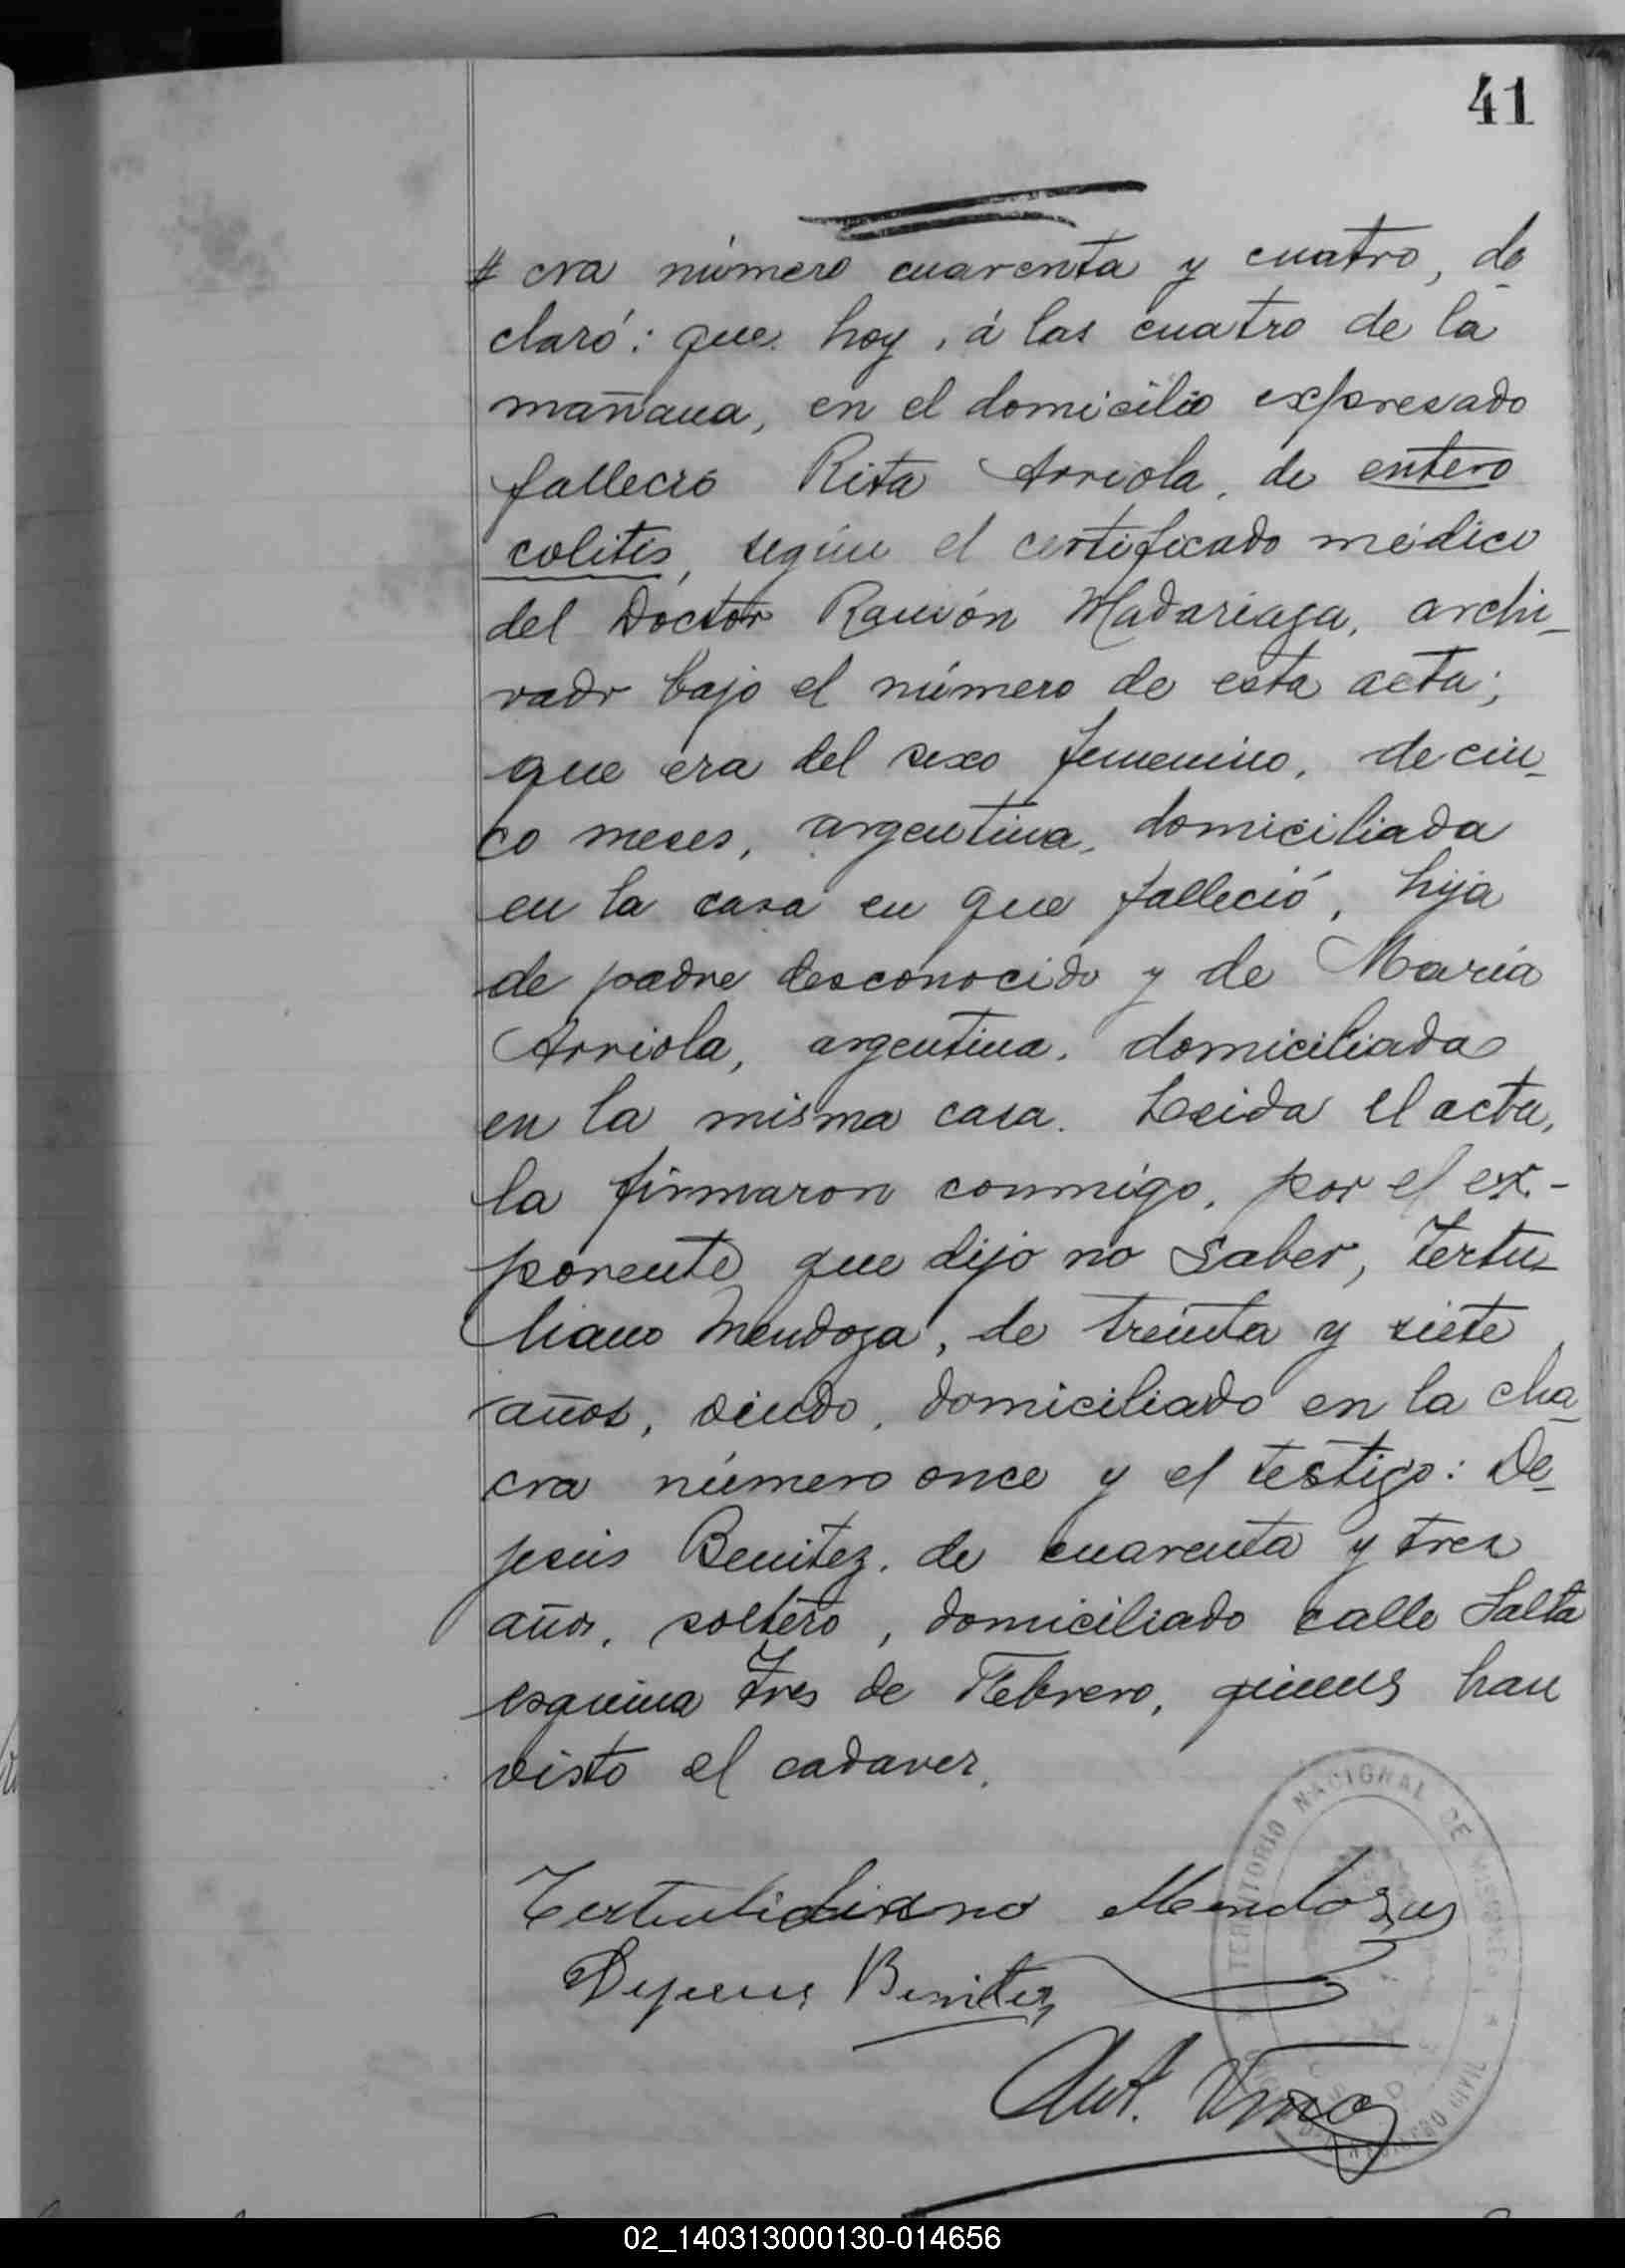 41
# cra número cuarenta y cuatro, de
claró: que hoy, á las cuatro de la
mañana, en el domicilio expresado
falleció Rita Arriola, de entero
colitis, según el certificado médico
del Doctor Ramón Madariaga, archi-
vado bajo el número de esta acta;
que era del sexo femenino, de cin-
co meses, argentina, domiciliada
en la casa en que falleció, hija
de padre desconocido y de María
Arriola, argentina, domiciliada
en la misma casa. Leida el acta,
la firmaron conmigo, por el ex-
ponente que dijo no saber, Tertu-
liano Mendoza, de treinta y siete
años, viudo, domiciliado en la cha-
cra número once y el testigo: De-
jesús Benitez, de cuarenta y tres
años, soltero, domiciliado calle Salta
esquina Tres de Febrero, quienes han
visto el cadaver.
TERRITORIO NACIONAL DE MISIONES
Mendoza
Dejesus Benitez
02_140313000130-014656